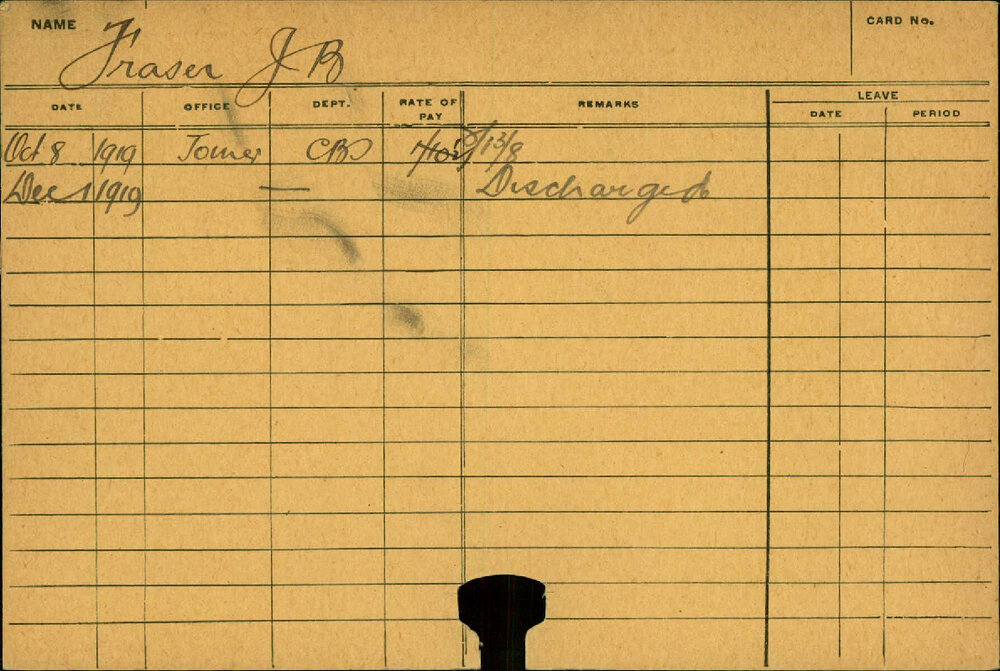 NAME Fraser J B CARD No.
DATE OFFICE DEPT. RATE OF PAY REMARKS LEAVE
DATE PERIOD
Oct 8 1919 Joiner CBS 13/8
Dec 1 1919 — Discharged